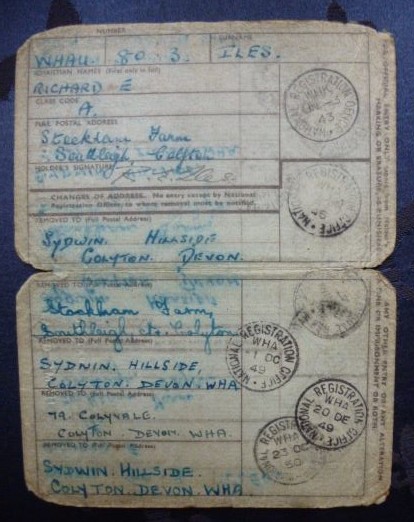 NUMBER SURNAME
WHAU. 80. 3. ILES.
CHRISTIAN NAMES (First only in full)
RICHARD E
CLASS CODE
A.
FULL POSTAL ADDRESS
Stockham Farm
Southleigh, Colyton
HOLDER'S SIGNATURE
CHANGES OF ADDRESS. No entry except by National
Registration Officer, to whom removal must be notified.
REMOVED TO (Full Postal Address)
SYDWIN. HILLSIDE
COLYTON. DEVON.
REMOVED TO (Full Postal Address)
Stockham Farm,
Southleigh, Colyton
REMOVED TO (Full Postal Address)
SYDWIN. HILLSIDE,
COLYTON. DEVON. WHA
REMOVED TO (Full Postal Address)
COLYVALE.
COLYTON DEVON. WHA.
REMOVED TO (Full Postal Address)
SYDWIN. HILLSIDE.
COLYTON. DEVON. WHA
NATIONAL REGISTRATION OFFICE
43
NATIONAL REGISTRATION OFFICE
NATIONAL REGISTRATION OFFICE
WHA
1 DC
49
NATIONAL REGISTRATION OFFICE
WHA
20 DE
49
NATIONAL REGISTRATION OFFICE
WHA
23 OC
50
ANY OTHER ENTRY OR ANY ALTERATION